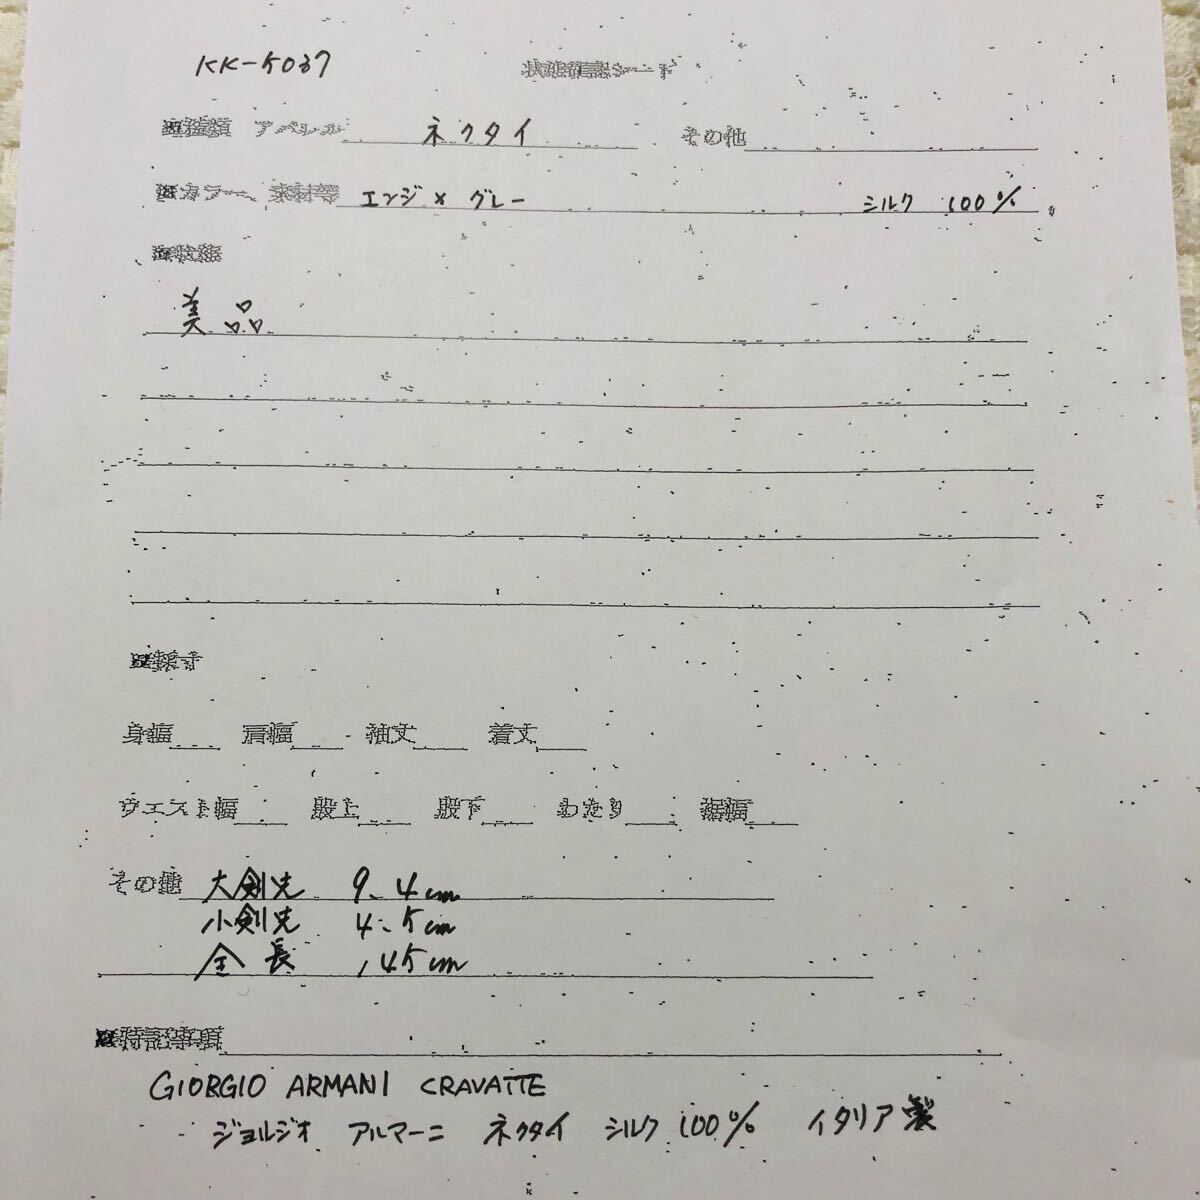 KK-5037 状態確認シート
■種類 アパレル ネクタイ その他
■カラー、素材等 エンジ×グレー シルク 100%
■状態
美品
■採寸
身幅 肩幅 袖丈 着丈
ウエスト幅 股上 股下 わたり 裾幅
その他 大剣先 9.4cm
小剣先 4.5cm
全長 145cm
■特記事項
GIORGIO ARMANI CRAVATTE
ジョルジオ アルマーニ ネクタイ シルク 100% イタリア製